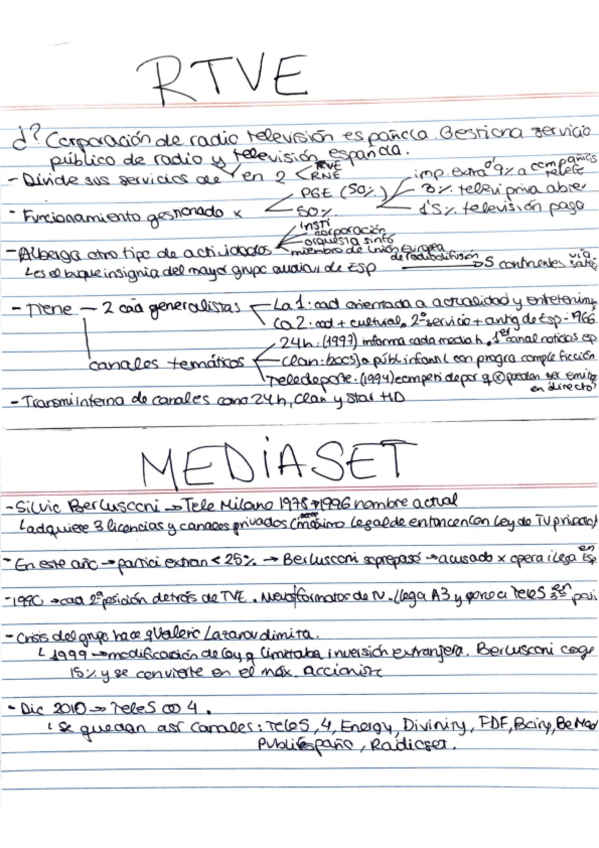 RTVE
¿? Corporación de radio televisión española. Gestiona servicio
público de radio y televisión española.
- Divide sus servicios de en 2 < RTVE
RNE
- Funcionamiento gestionado x < PGE (50%)
50%
imp. extra 0'9% a compañías telefo
3% televi priva abier
1'5% televisión pago
- Alberga otro tipo de actividades
insti
corporación
orquesta sinfo
miembro de Unión Europea
de radiodifusión → 5 continentes vía saté
↳ es el buque insignia del mayor grupo audiovi de ESP
- Tiene — 2 cad generalistas
La 1: cad orientada a actualidad y entretenim
La 2: cad + cultural, 2º servicio + antig de Esp - 1966
canales temáticos
24h. (1997) informa cada media h. 1er canal noticias esp
Clan: (2005) a públ infantil con progra comple ficción
Teledeporte. (1994) competi depor q puedan ser emite
en directo
- Transmi interna de canales como 24h, Clan y Star HD
MEDIASET
- Silvio Berlusconi → Tele Milano 1978 → 1996 nombre actual
↳ adquiere 3 licencias y canales privados (máximo legal de entonces con Ley de TV privada)
- En este año → partici extran < 25% → Berlusconi sobrepasó → acusado x opera ilega en Esp
- 1990 → cad 2ª posición detrás de TVE. Nuevos formatos de TV. Llega A3 y pone a Tele5 en 3ª posi
- Crisis del grupo hace q Valerio Lazarov dimita.
↳ 1999 → modificación de ley q limitaba inversión extranjera. Berlusconi coge
15% y se convierte en el máx. accionista
- Dic 2010 → Tele5 4.
↳ Se quedan así canales: Tele5, 4, Energy, Divinity, FDF, Boing, BeMad
Publiespaña, Radioset.